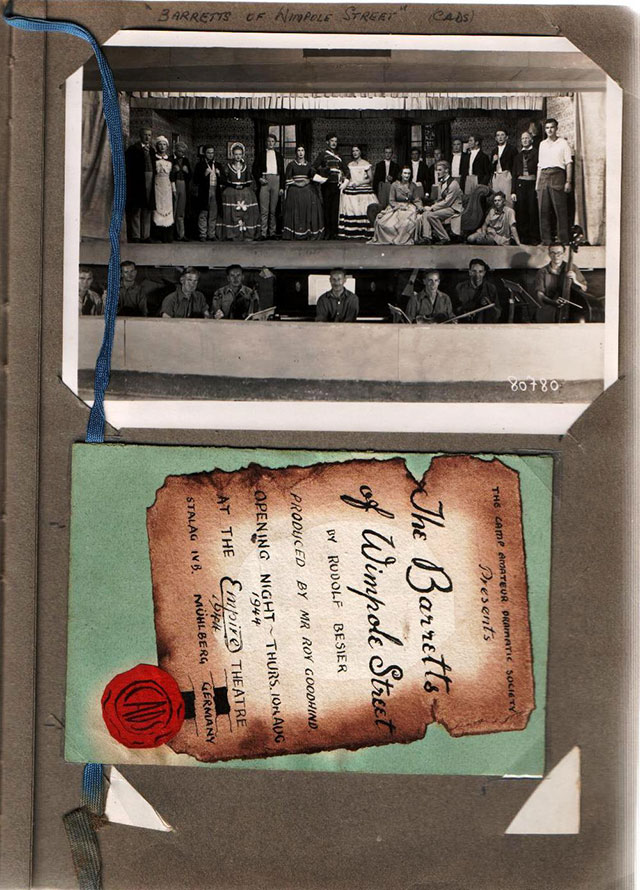 "BARRETTS OF WIMPOLE STREET" (CADS)
80780
THE CAMP AMATEUR DRAMATIC SOCIETY
Presents
The Barretts
of Wimpole Street
BY RUDOLF BESIER
PRODUCED BY MR ROY GOODHIND
OPENING NIGHT ~ THURS. 10TH AUG
1944
AT THE Empire THEATRE
STALAG IVB. MÜHLBERG GERMANY
CADS